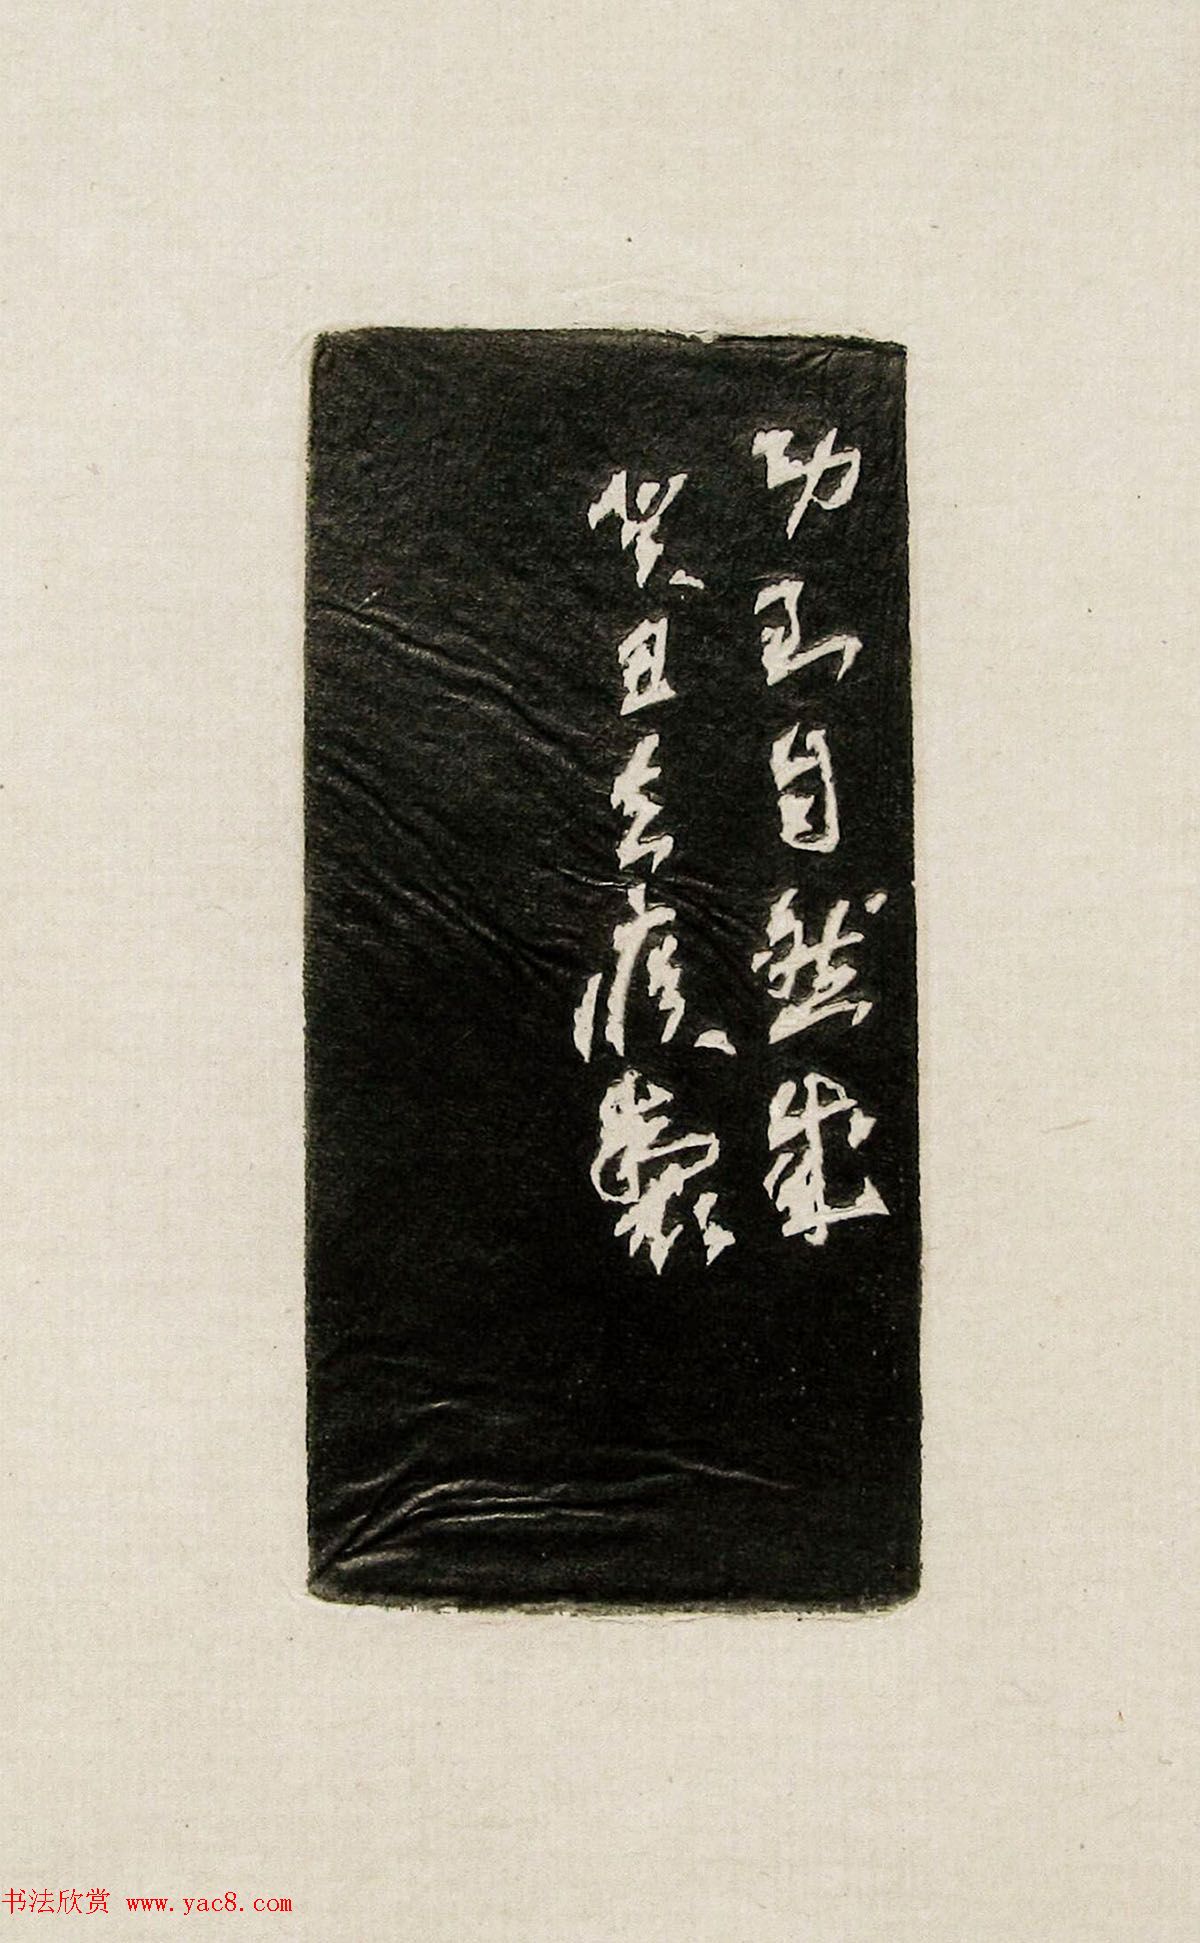 功到自然成
癸丑去疾制
书法欣赏 www.yac8.com